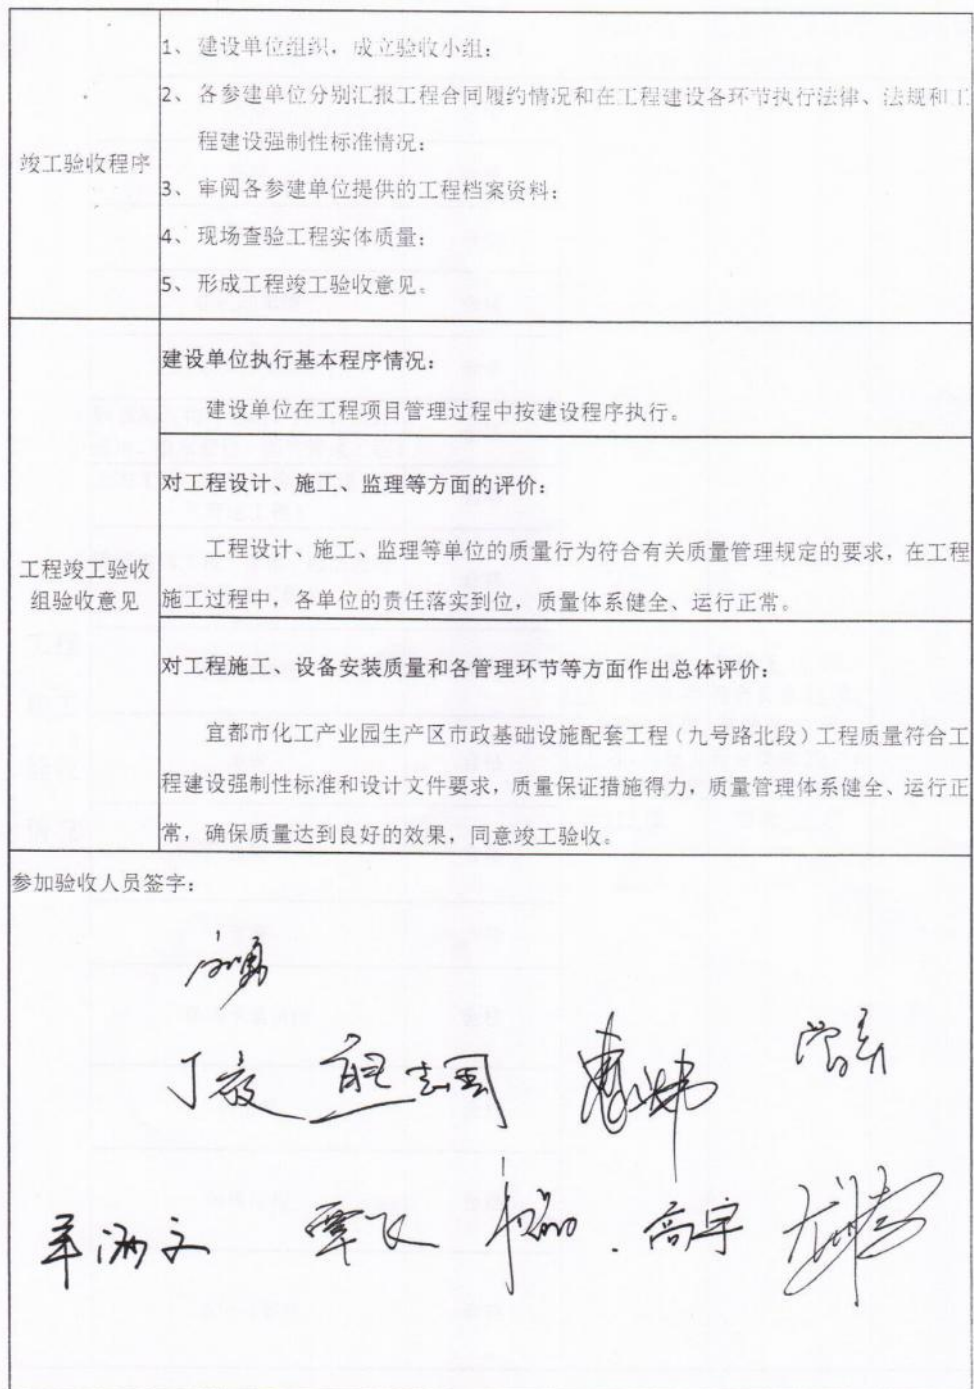 竣工验收程序
1、建设单位组织，成立验收小组；
2、各参建单位分别汇报工程合同履约情况和在工程建设各环节执行法律、法规和工
程建设强制性标准情况；
3、审阅各参建单位提供的工程档案资料；
4、现场查验工程实体质量；
5、形成工程竣工验收意见。
工程竣工验收
组验收意见
建设单位执行基本程序情况：
建设单位在工程项目管理过程中按建设程序执行。
对工程设计、施工、监理等方面的评价：
工程设计、施工、监理等单位的质量行为符合有关质量管理规定的要求，在工程
施工过程中，各单位的责任落实到位，质量体系健全、运行正常。
对工程施工、设备安装质量和各管理环节等方面作出总体评价：
宜都市化工产业园生产区市政基础设施配套工程（九号路北段）工程质量符合工
程建设强制性标准和设计文件要求，质量保证措施得力，质量管理体系健全、运行正
常，确保质量达到良好的效果，同意竣工验收。
参加验收人员签字：
覃飞
高宇